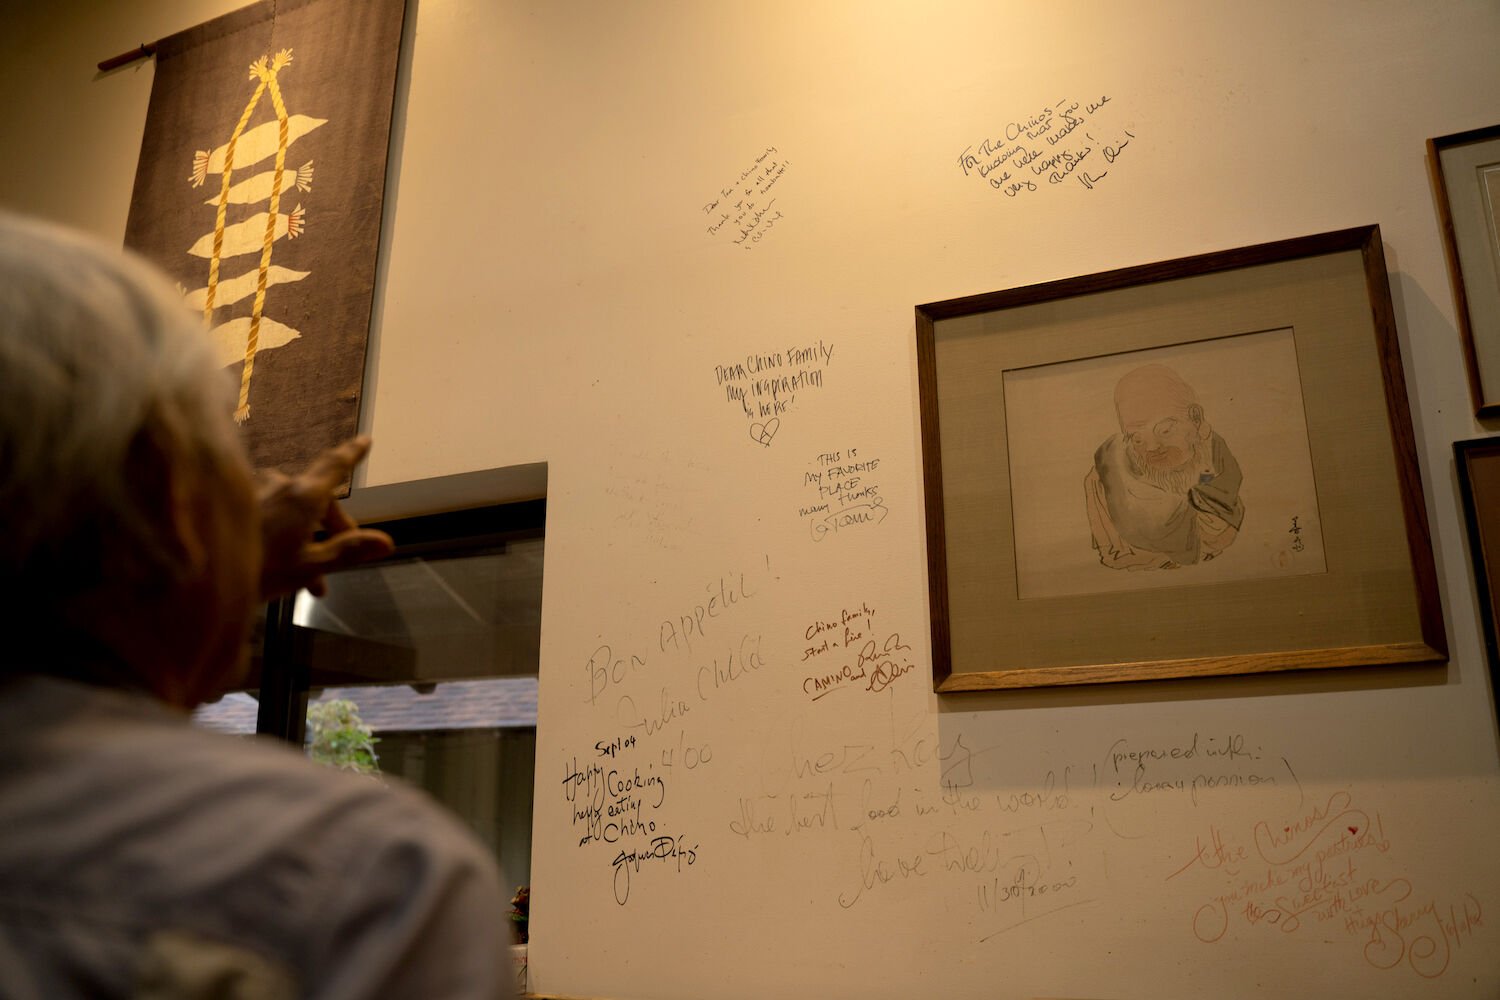 For The Chinos –
knowing that you
are here makes me
very happy
Thanks!
Dear Tom + Chino Family
Thank you for all that
you do
DEAR CHINO FAMILY
My inspiration
is HERE!
THIS IS
my FAVORITE
PLACE
many thanks
Bon Appétit!
Julia Child
4/00
Chino family,
start a fire!
CAMINO
and
Sept 04
Happy
Cooking
happy eating
at Chino
Chez Kay
the best food in the world!
(prepared with
love + passion)
11/30/2000
to the Chinos
you make my pastries
the Sweetest
with Love
Hugs Sherry